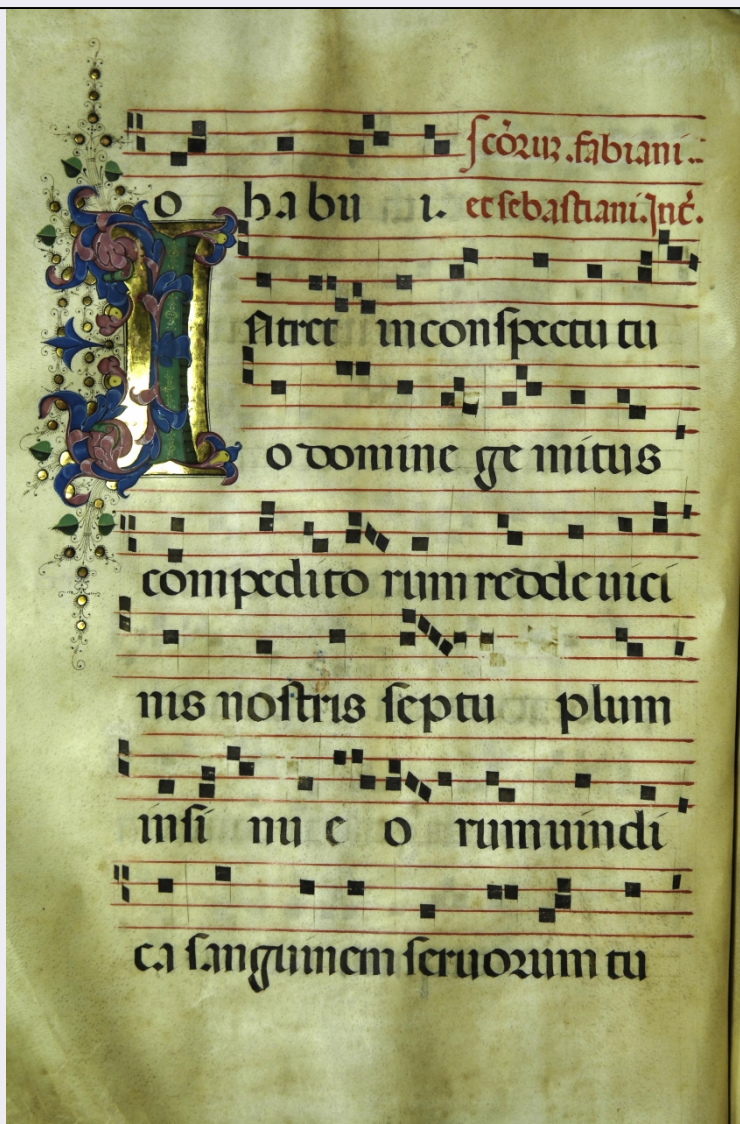 o habu i. sc̄oruz. fabiani
et sebastiani. Int̄.
Intret in conspectu tu
o domine ge mitus
compedito rum redde uici
nis nostris septu plum
insi nu e o rum uindi
ca sanguinem seruorum tu